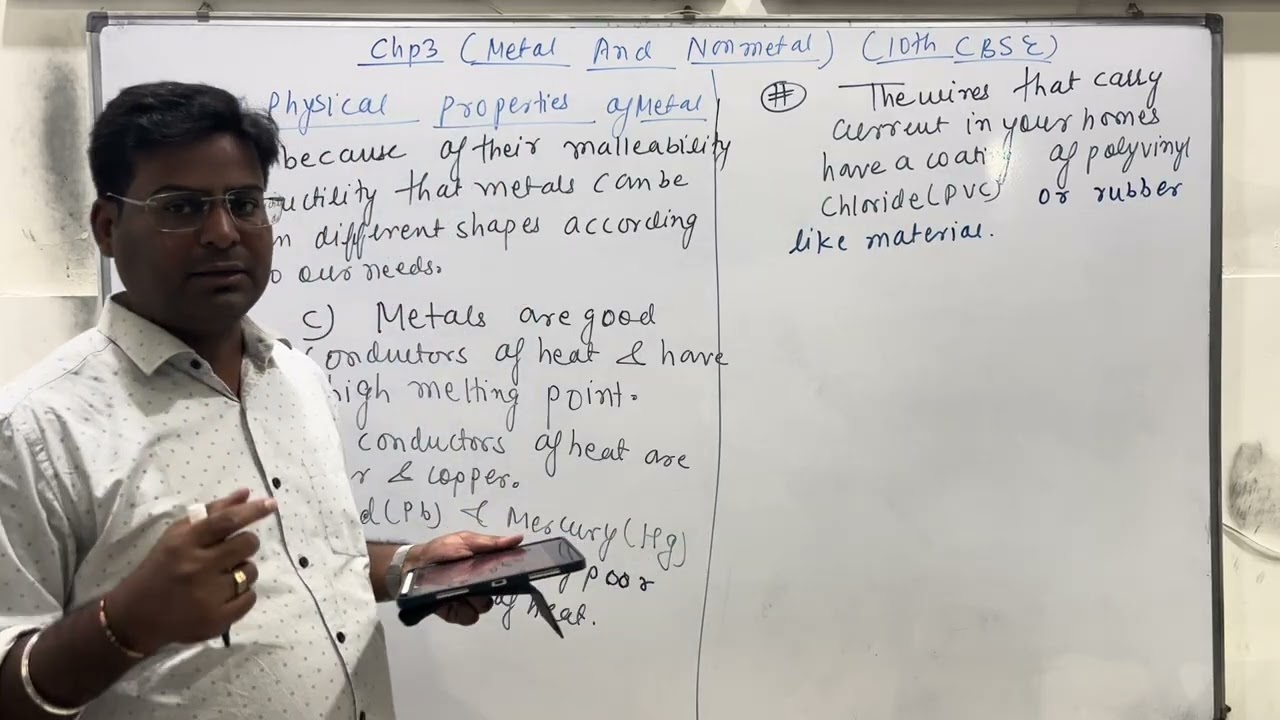 Chp3 (Metal And Nonmetal) (10th CBSE)
Physical Properties of Metal
because of their malleability
that metals can be
different shapes according
our needs.
c) Metals are good
conductors of heat & have
high melting point.
conductors of heat are
& copper.
(Pb) & Mercury (Hg)
poor
of heat.
# The wires that carry
current in your homes
have a of polyvinyl
chloride (PVC) or rubber
like material.